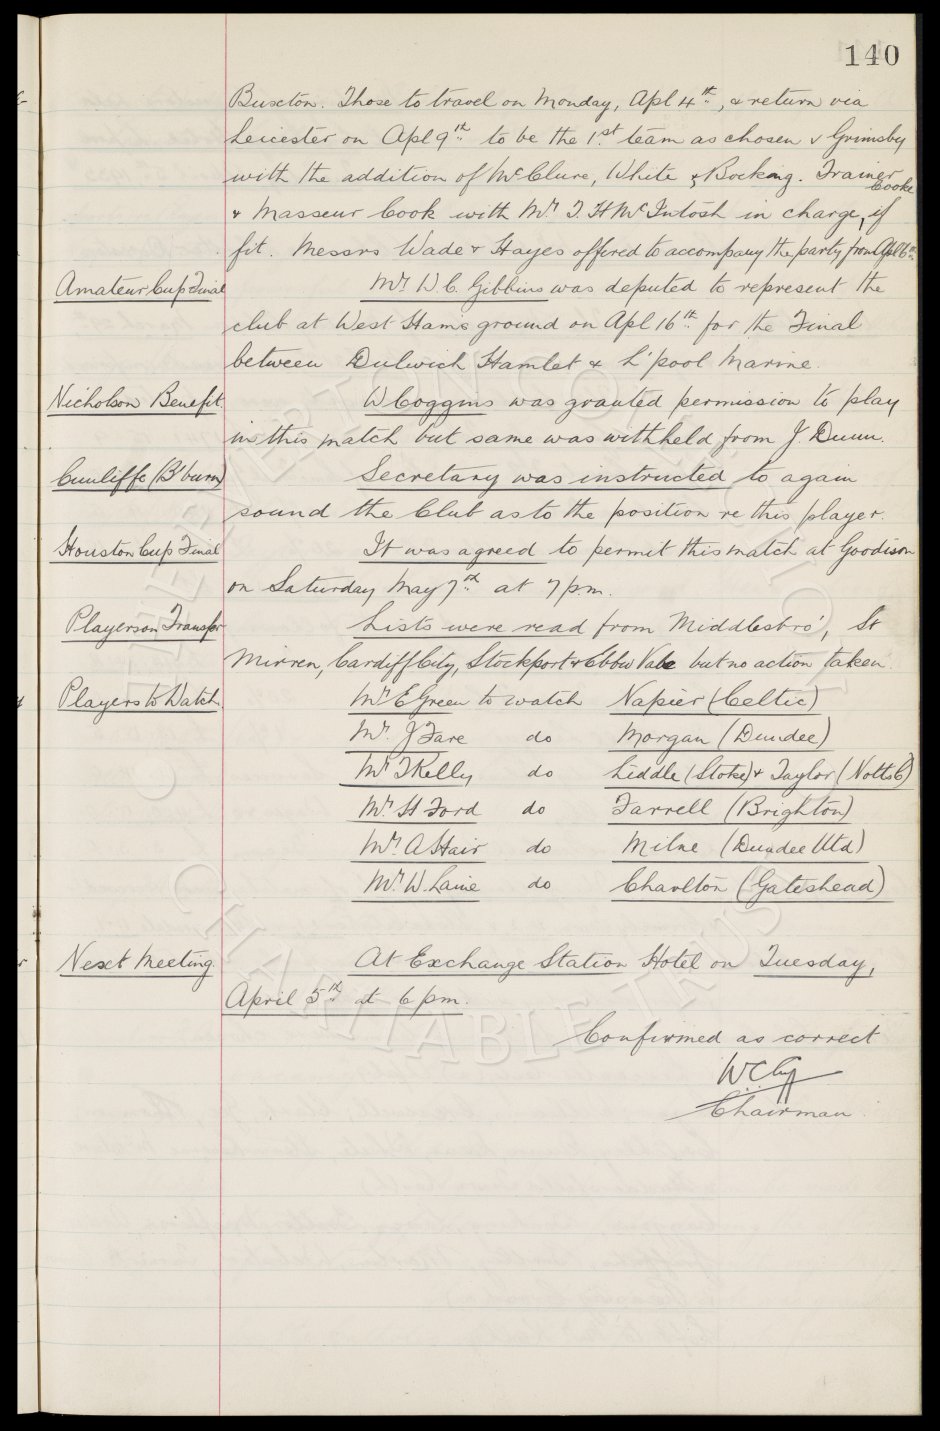 140
Buxton. Those to travel on Monday, Apl 4th, & return via
Leicester on Apl 9th to be the 1st team as chosen v Grimsby
with the addition of McClure, White & Bocking. Trainer Cooke
& Masseur Cook with Mr T. H McIntosh in charge, if
fit. Messrs Wade & Hayes offered to accompany the party from Apl 6th
Amateur Cup Final Mr W. C. Gibbins was deputed to represent the
club at West Ham's ground on Apl 16th for the Final
between Dulwich Hamlet & L'pool Marine.
Nicholson Benefit. W Coggins was granted permission to play
in this match but same was withheld from J. Dunn.
Cunliffe (B'burn) Secretary was instructed to again
sound the Club as to the position re this player.
Houston Cup Final It was agreed to permit this match at Goodison
on Saturday May 7th at 7 p.m.
Players on Transfer Lists were read from Middlesbro', St
Mirren, Cardiff City, Stockport & Ebbw Vale but no action taken.
Players to Watch. Mr E Green to watch Napier (Celtic)
Mr. J Fare do Morgan (Dundee)
Mr T Kelly do Liddle (Stoke) & Taylor (Notts C)
Mr. H Ford do Farrell (Brighton)
Mr. A Hair do Milne (Dundee Utd)
Mr W. Laine do Charlton (Gateshead)
Next Meeting At Exchange Station Hotel on Tuesday,
April 5th at 6 pm.
Confirmed as correct
W C Cuff
Chairman
THE EVERTON COLLECTION
CHARITABLE TRUST